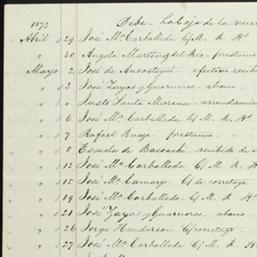 1872 Debe - La Caja de la
Abril 29 José Ma. Carballeda C/ M. R. Ho
" 30 Angela Martinez del Rio - prestamo
Mayo 2 José de Ansoategui - efectivo
" 2 José Zayas y Guarneros - abono
" " Justo Santa Marina - arrendamiento
" 6 José Ma. Carballeda C/ M. R. Ho
" 7 Rafael prestamo
" 8 Escuela de Bacoachi recibido de
" 13 José Ma. Carballeda C/ M. R. Ho
" 15 José Ma. Camargo C/ de corretage
" 19 José Ma. Carballeda C/ M. R. Ho
" 21 José Zayas y Guarneros, abono
" 26 Jorge Henderson C/ corretage
" 27 José Ma. Carballeda C/ M. R. Ho